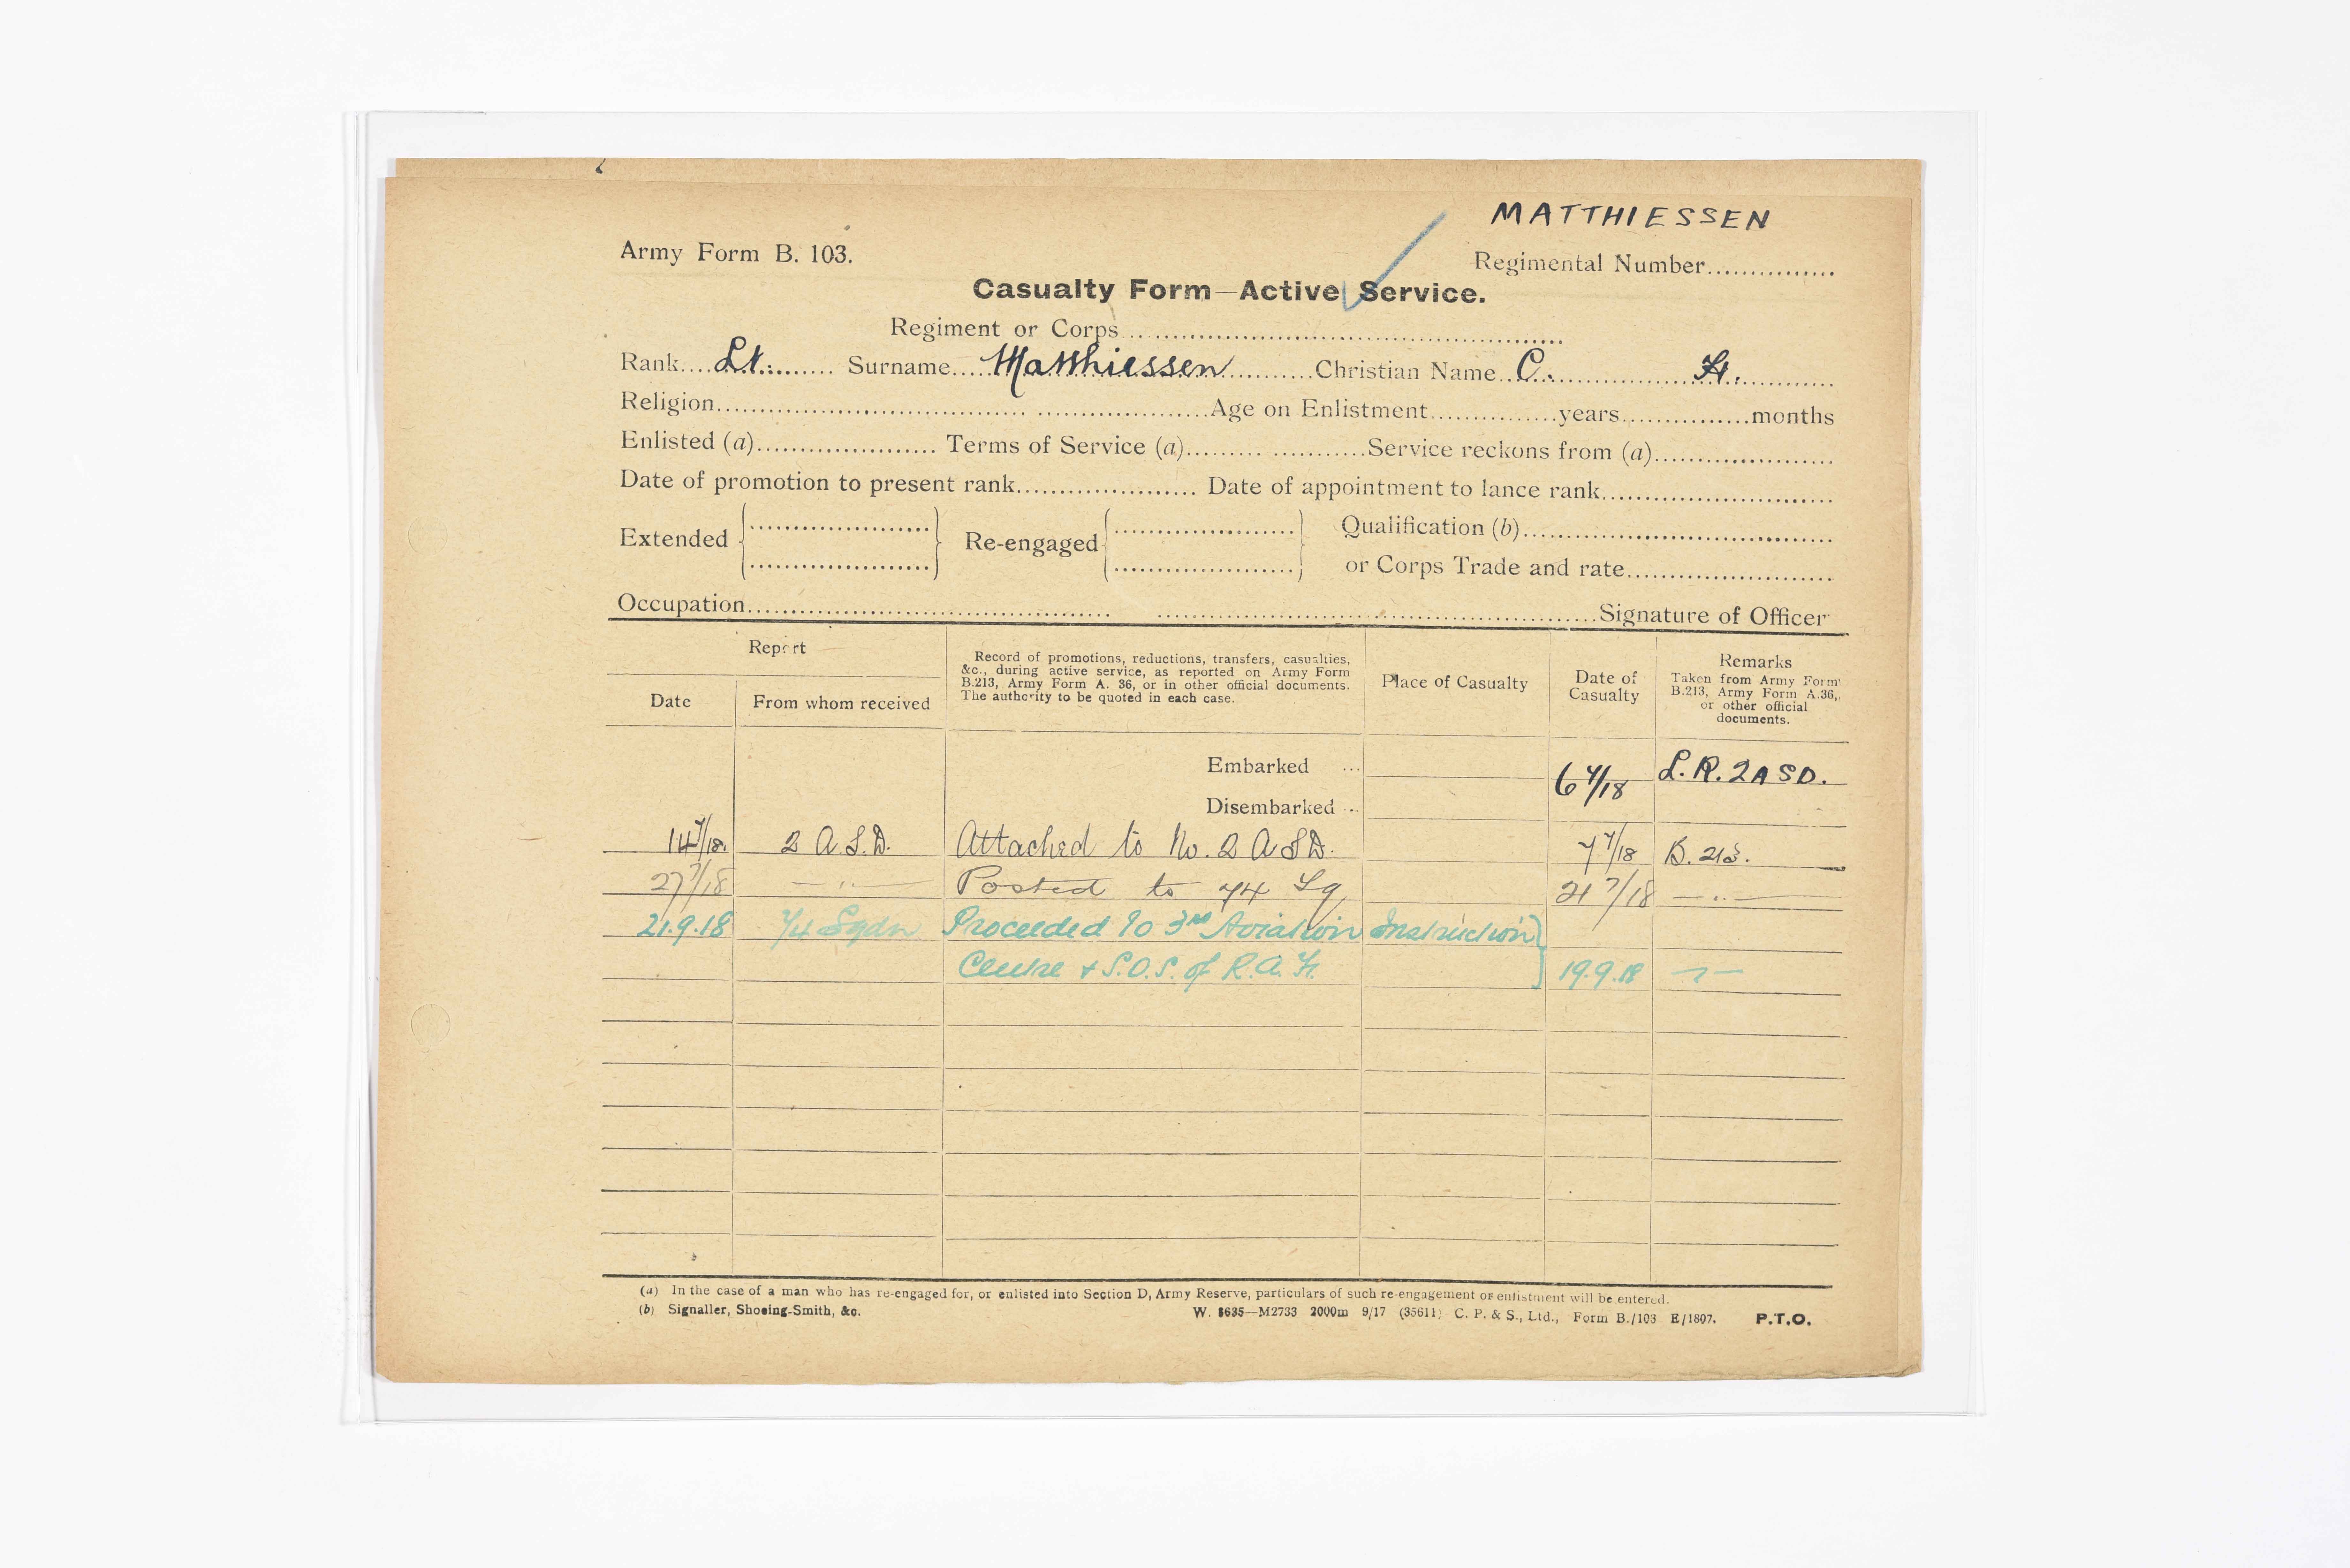 MATTHIESSEN
Army Form B. 103.
Regimental Number
Casualty Form—Active Service.
Regiment or Corps
Rank Lt. Surname Matthiessen Christian Name C. H.
Religion Age on Enlistment years months
Enlisted (a) Terms of Service (a) Service reckons from (a)
Date of promotion to present rank Date of appointment to lance rank
Extended Re-engaged Qualification (b)
or Corps Trade and rate
Occupation Signature of Officer
Report
Date
From whom received
Record of promotions, reductions, transfers, casualties,
&c., during active service, as reported on Army Form
B.213, Army Form A. 36, or in other official documents.
The authority to be quoted in each case.
Place of Casualty
Date of
Casualty
Remarks
Taken from Army Form
B.213, Army Form A.36,
or other official
documents.
Embarked ... 6 7/18 L.R. 2 ASD.
Disembarked ...
14 7/18. 2 A.S.D. Attached to No. 2 A S D. 7 7/18 B. 213.
27 7/18 — " — Posted to 74 Sq 21 7/18 — " —
21.9.18 74 Sqdn Proceeded to 3rd Aviation Instruction
Centre & S.O.S. of R.A.F. 19.9.18
(a) In the case of a man who has re-engaged for, or enlisted into Section D, Army Reserve, particulars of such re-engagement or enlistment will be entered.
(b) Signaller, Shoeing-Smith, &c. W. 8635—M2733 2000m 9/17 (35611) C. P. & S., Ltd., Form B./103 E/1807. P.T.O.